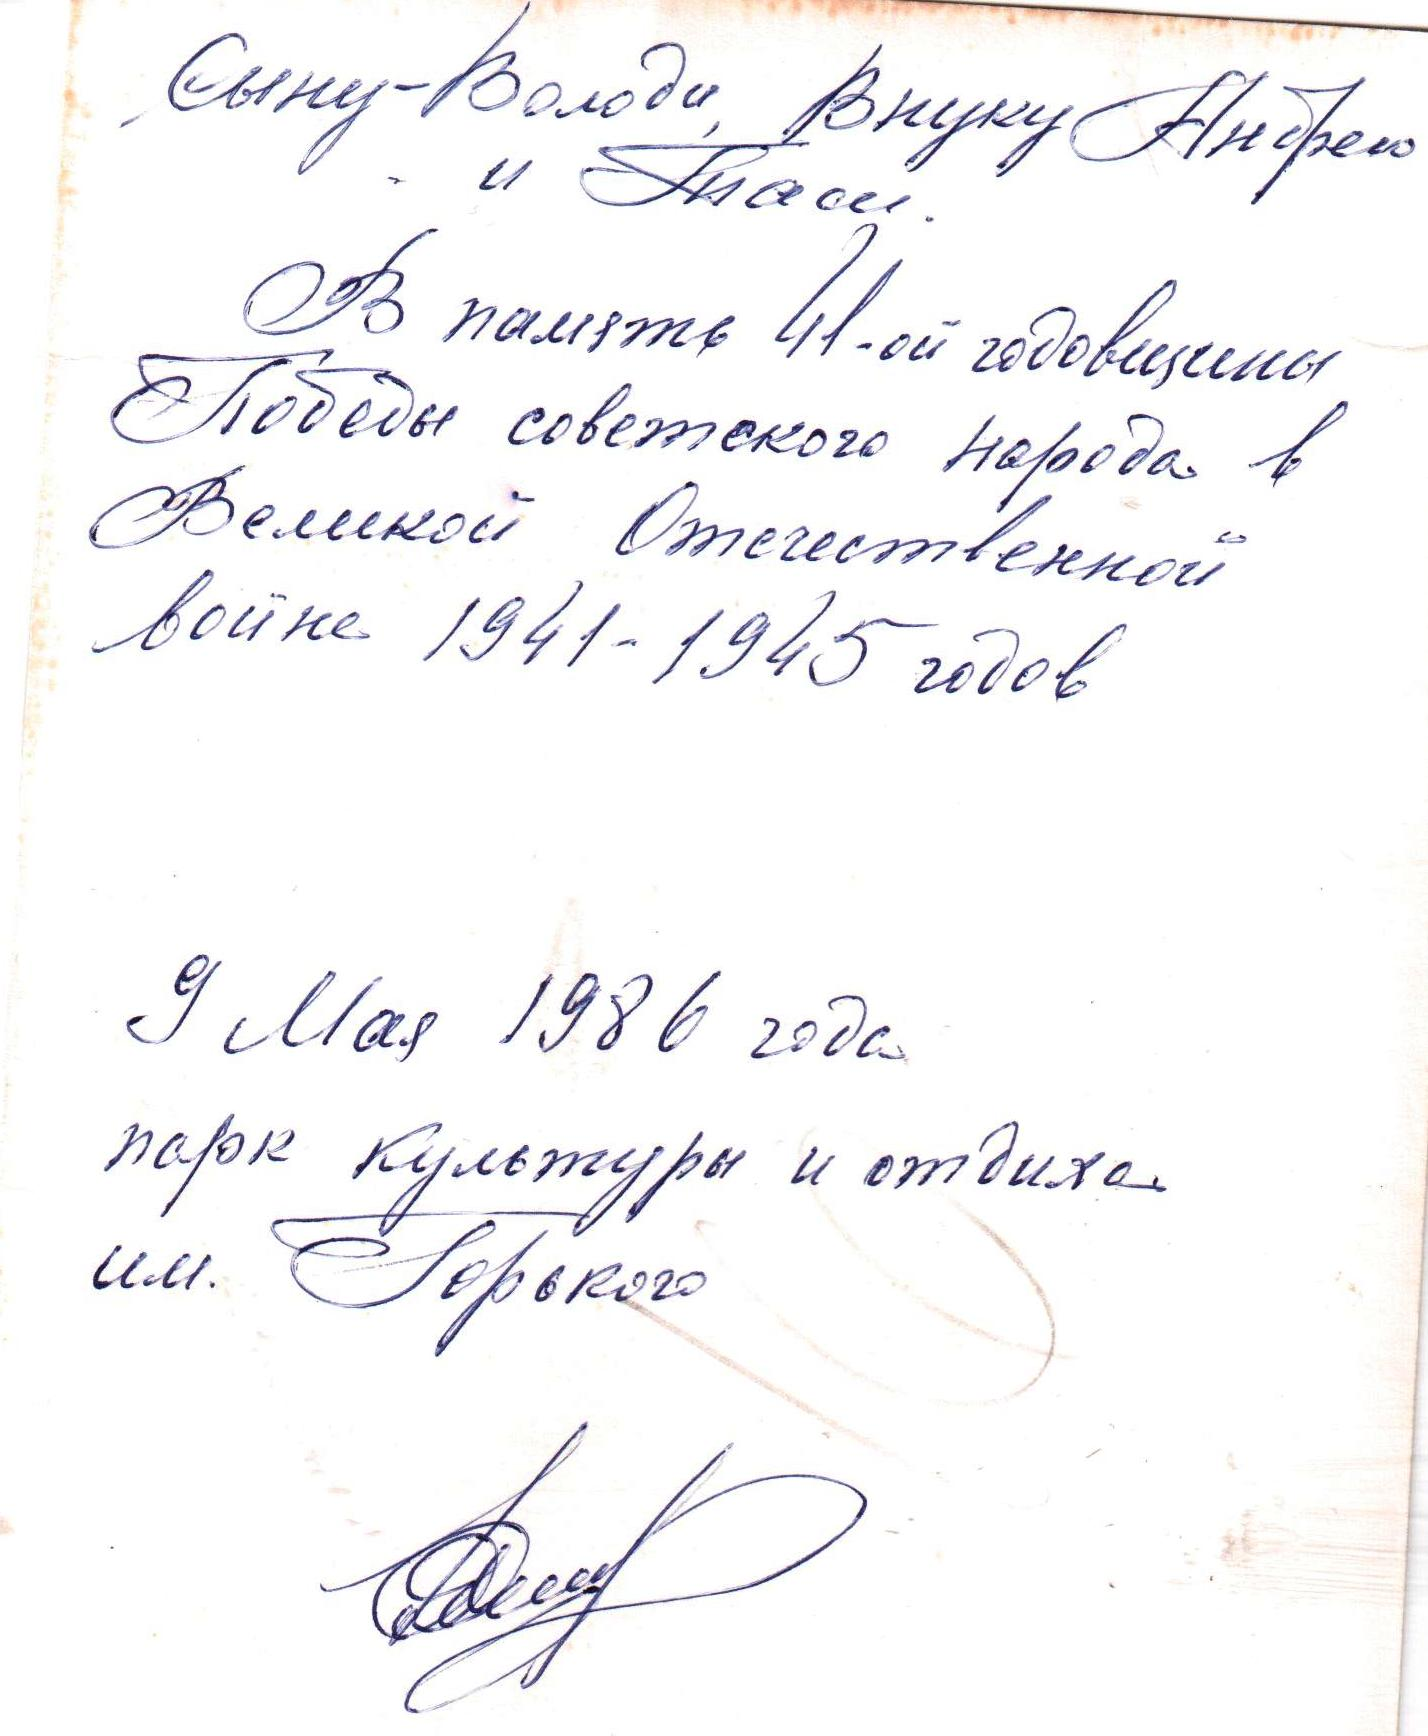 Сыну-Володи, Внуку Андрею
и Таси.
В память 41-ой годовщины
Победы советского народа в
Великой Отечественной
войне 1941-1945 годов
9 Мая 1986 года
парк культуры и отдиха
им. Горького